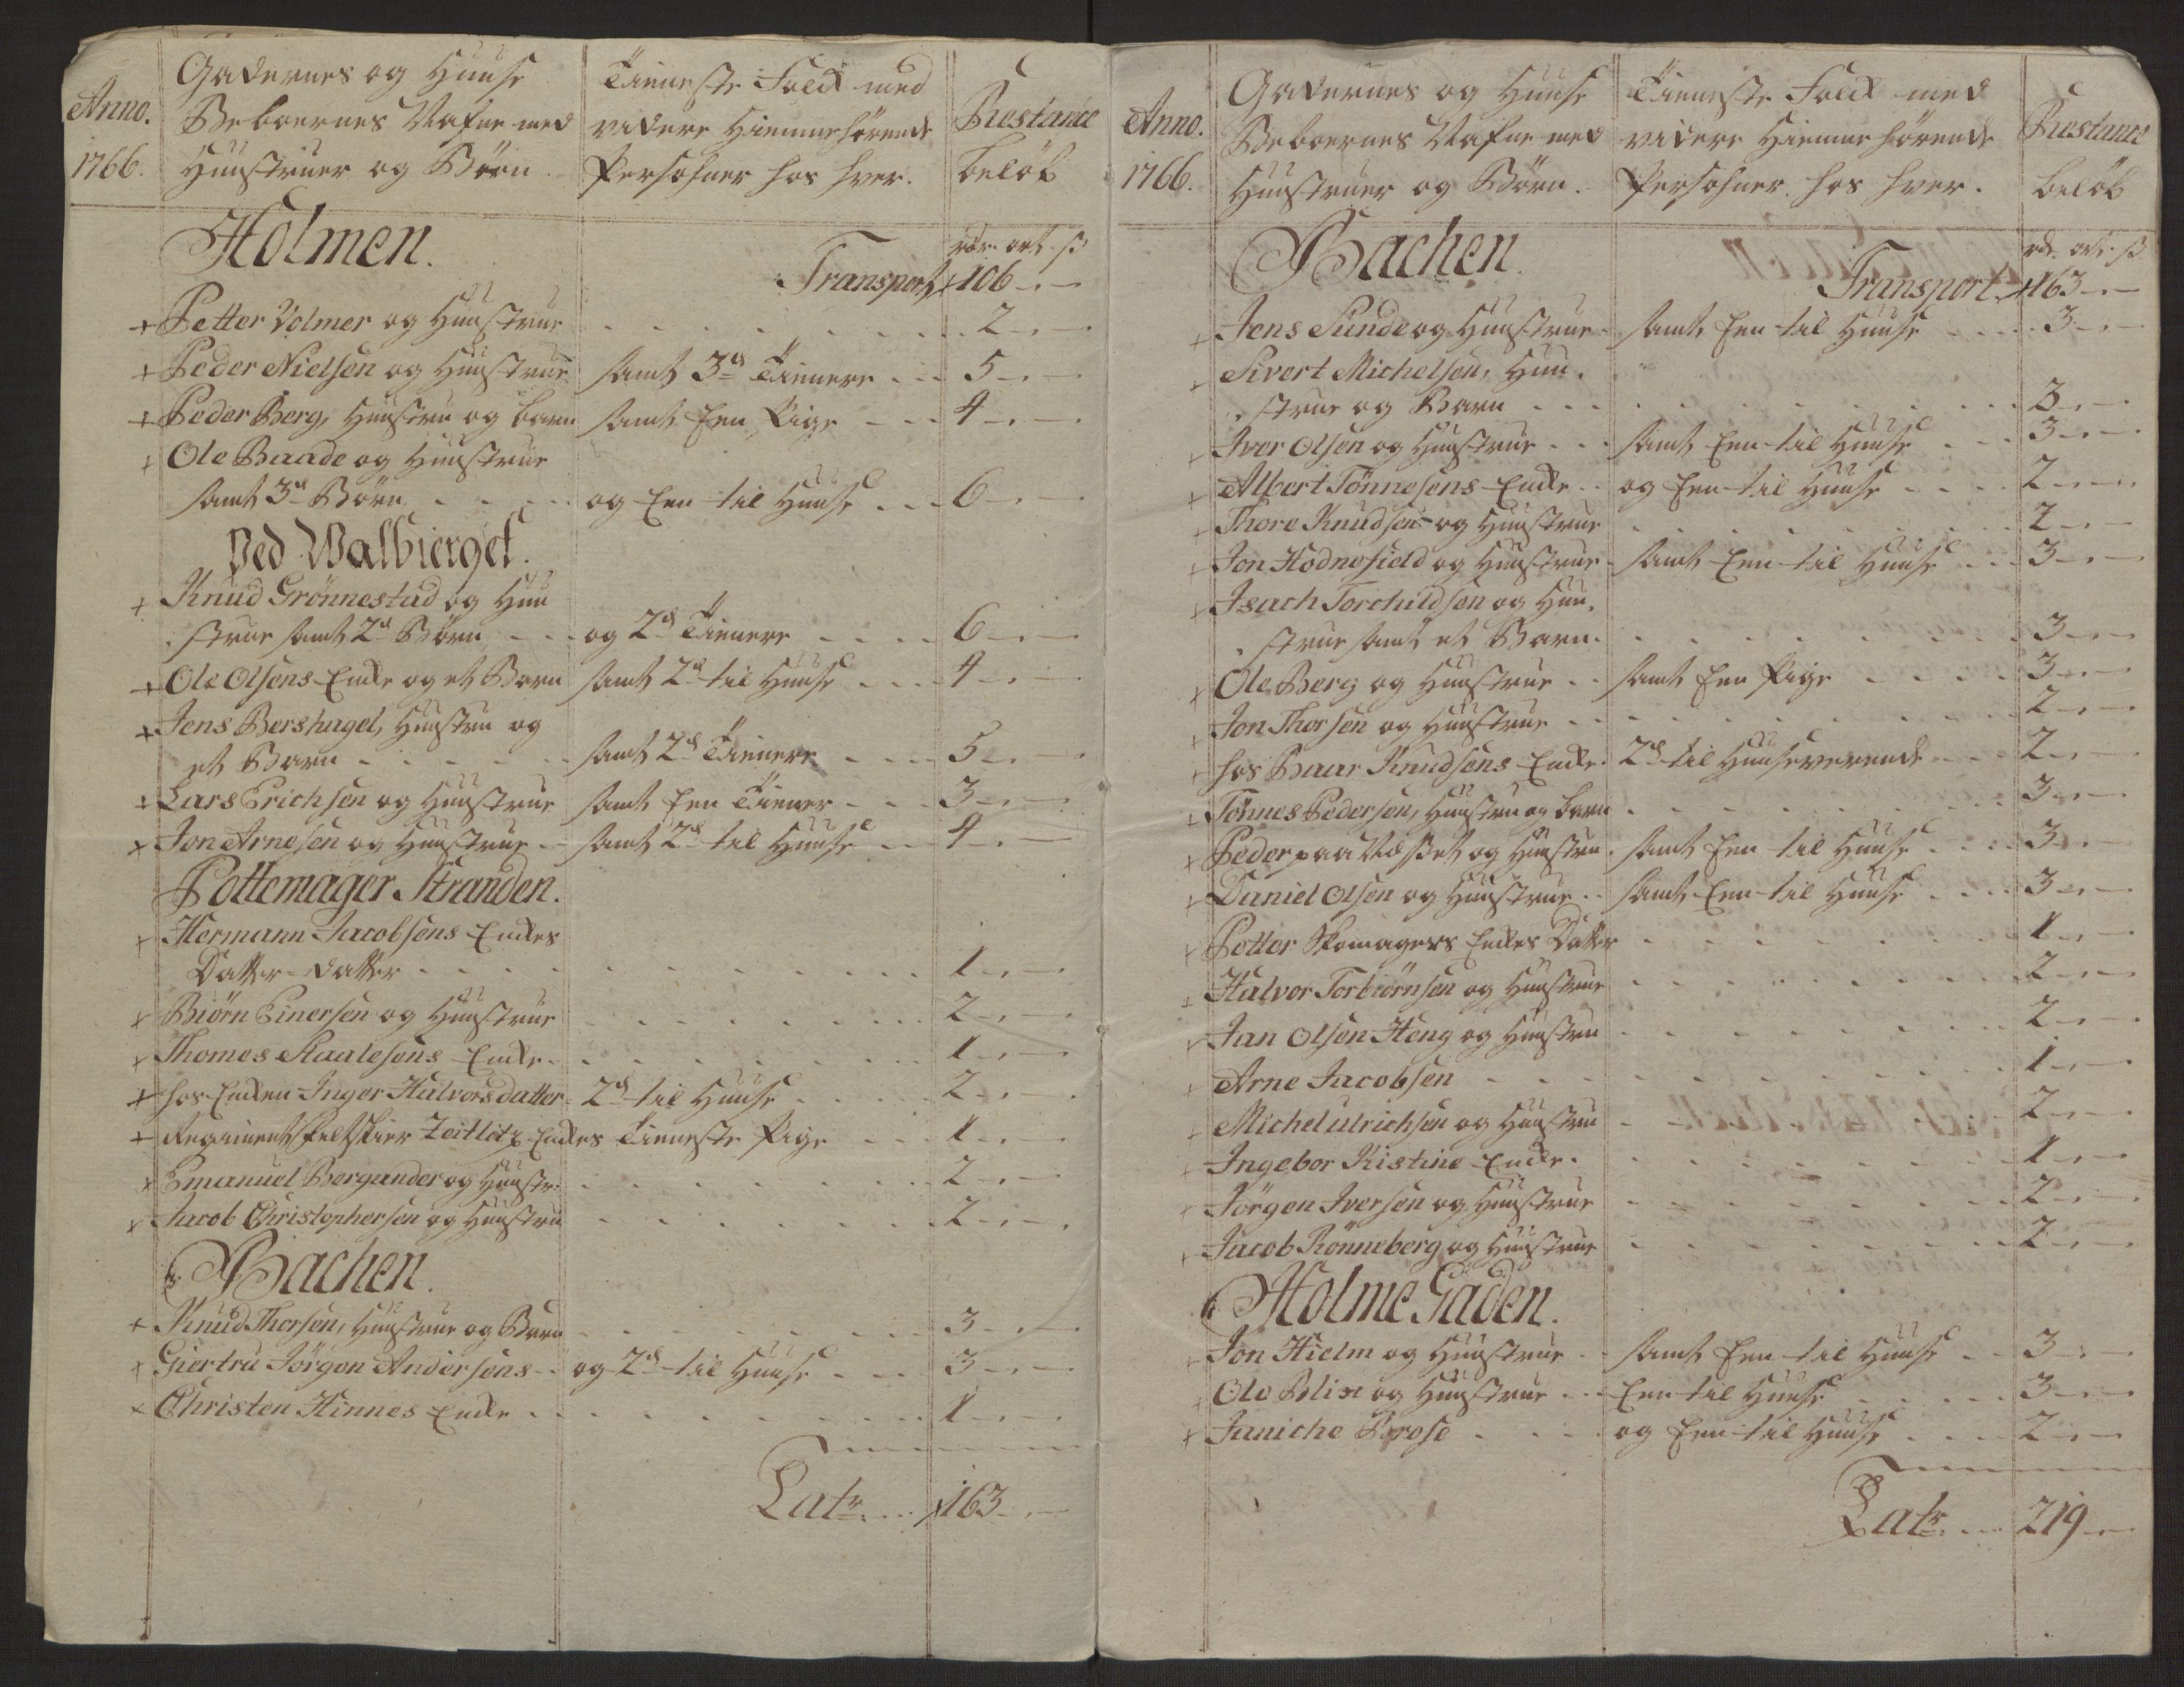 Anno.
1766.
Gadernes og Huuse
Beboernes Nafne med
Huustruer og Börn.
Tieneste Folck med
videre Hiemmehörende
Persohner hos hver.
Restance
belöb
Holmen.
rdr. ort. ß
Transport 106 - . -
+ Petter Volmer og Huustrue . . . . . . . . 2 - . -
+ Peder Nielsen og Huustrue samt 3de Tienere . . . 5 - . -
+ Peder Berg, Huustru og barn samt Een Pige - - - 4 - . -
+ Ole Baade og Huustrue
samt 3de Börn . . . . og Een til Huuse . . . 6 - . -
Ved Walbierget.
+ Knud Grönnestad og Huu
strue samt 2de Börn - - og 2de Tienere . . . . 6 - . -
+ Ole Olsens Encke og et Barn samt 2de til Huuse . . . 4 - . -
+ Jens Bershagel, Huustru og
et Barn . . . . . . samt 2de Tienere . . . . 5 - . -
+ Lars Erichsen og Huustrue samt Een Tiener - - - 3 - . -
+ Jon Arnesen og Huustrue - - samt 2de til Huuse . . . 4 - . -
Pottemager Stranden.
+ Hermann Jacobsens Enckes
Datter-datter . . . . . . . . . . . 1 - . -
+ Biörn Einersen og Huustrue . . . . . . . . 2 - . -
+ Thomes Staalesens Encke . . . . . . . . 1 - . -
+ hos Encken Inger Halvorsdatter . 2de til Huuse . . . . . 2 - . -
+ Regiments feltskier Zeitlitz Enckes Tieneste Pige - - - 1 - . -
+ Emanuel Bergander og Huustr: . . . . . . . . 2 - . -
+ Jacob Christophersen og Huustru . . . . . . . . 2 - . -
Bachen.
+ Knud Thorsen, Huustrue og Barn . . . . . . . . 3 - . -
+ Giertru Jörgen Andersens - - og 2de til Huuse . . . 3 - . -
+ Christen Hinnes Encke . . . . . . . . . 1 - . -
Latr: . . . 163 - . -
Anno.
1766.
Gadernes og Huuse
Beboernes Nafne med
Huustruer og Börn.
Tieneste Folck med
videre Hiemmehörende
Persohner hos hver.
Restance
belöb
Bachen.
rdr. ort. ß
Transport 163 - . -
+ Jens Sunde og Huustrue - samt Een til Huuse . . . . 3 - . -
+ Sivert Michelsen, Huu.
strue og Barn . . . . . . . . . . . 3 - . -
+ Iver Olsen og Huustrue . . . samt Een til Huuse . . . 3 - . -
+ Albert Tönnesens Encke . . og Een til Huuse . . . . 2 - . -
+ Thore Knudsen og Huustrue . . . . . . . . 2 - . -
+ Jon Hodnefield og Huustrue - samt Een til Huuse . . . 3 - . -
+ Isach Torchildsen og Huu.
strue samt et Barn . . . . . . . . . 3 - . -
+ Ole Berg og Huustrue . . samt Een Pige . . . . . 3 - . -
+ Jon Thorsen og Huustrue . . . . . . . . . . 2 - . -
+ hos Baar Knudsens Encke . 2de til Huuseverende . . . 2 - . -
+ Tönnes Pedersen, Huustru og barn . . . . . . . . 3 - . -
+ Peder paa og Huustru . samt Een til Huuse . . . . 3 - . -
+ Daniel Olsen og Huustrue . . samt Een til Huuse . . . . 3 - . -
+ Petter Skomagers Enckes Datter . . . . . . . . 1 - . -
+ Halvor Torbiörnsen og Huustrue . . . . . . . . 2 - . -
+ Jan Olsen Heng og Huustru . . . . . . . . 2 - . -
+ Arne Jacobsen . . . . . . . . . . . 1 - . -
+ Michel Ulrichsen og Huustru - . . . . . . . 2 - . -
+ Ingebor Kistine Encke . . . . . . . . 1 - . -
+ Jörgen Iversen og Huustrue . . . . . . . . 2 - . -
+ Jacob Rönneberg og Huustrue . . . . . . . . 2 - . -
Holme Gaden.
+ Jon Hielm og Huustrue . . samt Een til Huuse . . 3 - . -
+ Ole Blix og Huustrue . . . Een til Huuse . . . . 3 - . -
+ Janiche Brose . . . . og Een til Huuse . . . . 2 - . -
Latr: . . . 219 - . -